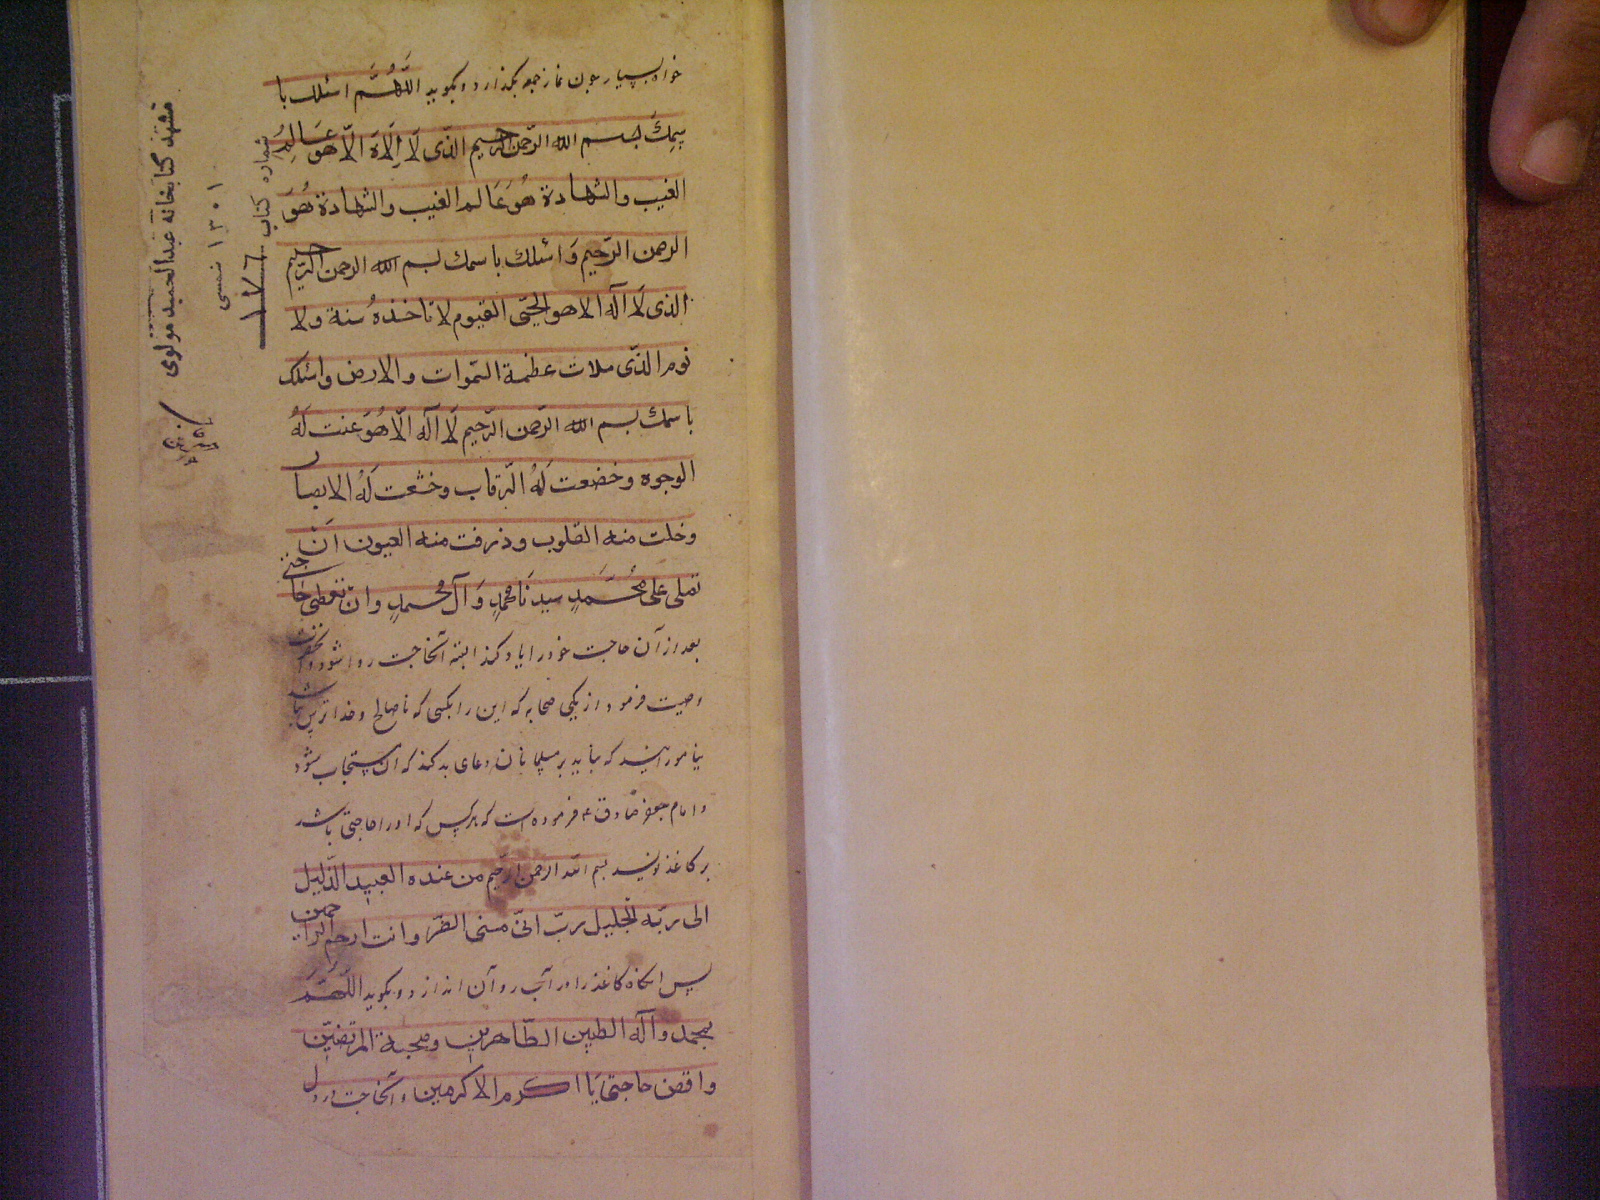 خواه بسیار چون نماز جمعه بگذارد و بگوید اللَّهُمَّ اسئلك با
سمِكَ بسم الله الرّحمن الرّحیم الذّی لَا اِلَاهَ الّا هو عَالِمُ
الغیب والشهادة هُوَ عَالم الغیب والشهادة هُوَ
الرحمن الرّحیم وَ اسئلك باسمك بسم الله الرحمن الرّحیم
الذی لَا اله الا هو الحَیّ القیوم لا تاخذهُ سنة ولا
نوم الذّی ملات عظمة السّموات والارض واسئلك
باسمك بسم الله الرّحمن الرّحیم لَا اله الّا هُوَ عنت لَهُ
الوجوه وخضعت لَهُ الرّقاب وخشعت لَهُ الابصار
وخلت منه القلوب وذرفت منه العیون اَنْ
تصلی عَلی مُحَمَّدٍ سیدنَا محمدٍ وَ آل محمدٍ وان تعطی حَاجتی
بعد از آن حاجت خود را یاد کند البته آنحاجت روا شود و آنحضرت
وصیت فرمود از یکی صحابه که این را بکسی که نا صالح و خدا ترس باشد
نیاموزانید که نباید بر مسلمانان دعای بد کند که آن مستجاب شود
و امام جعفر صادق ع فرموده است که هر کس که او را حاجتی باشد
بر کاغذ نویسد بسم الله الرحمن الرحیم من عنده العبید الذّلیل
الی ربّه الجلیل ربّ انّی مسنی الضّر وانت ارحم الراحمین
پس آنکاه کاغذ را در آب روان اندازد و بگوید اللَّهُمَّ
بمحمد وآله الطیبین الطّاهرین وصحبه المرتضیّن
واقض حاجتی یَا اكرم الاكرمین و آنحاجت در دل
مشهد کتابخانه عبدالحمید مولوی
۱۳۰۱ شمسی
شماره کتاب
۱۷۶